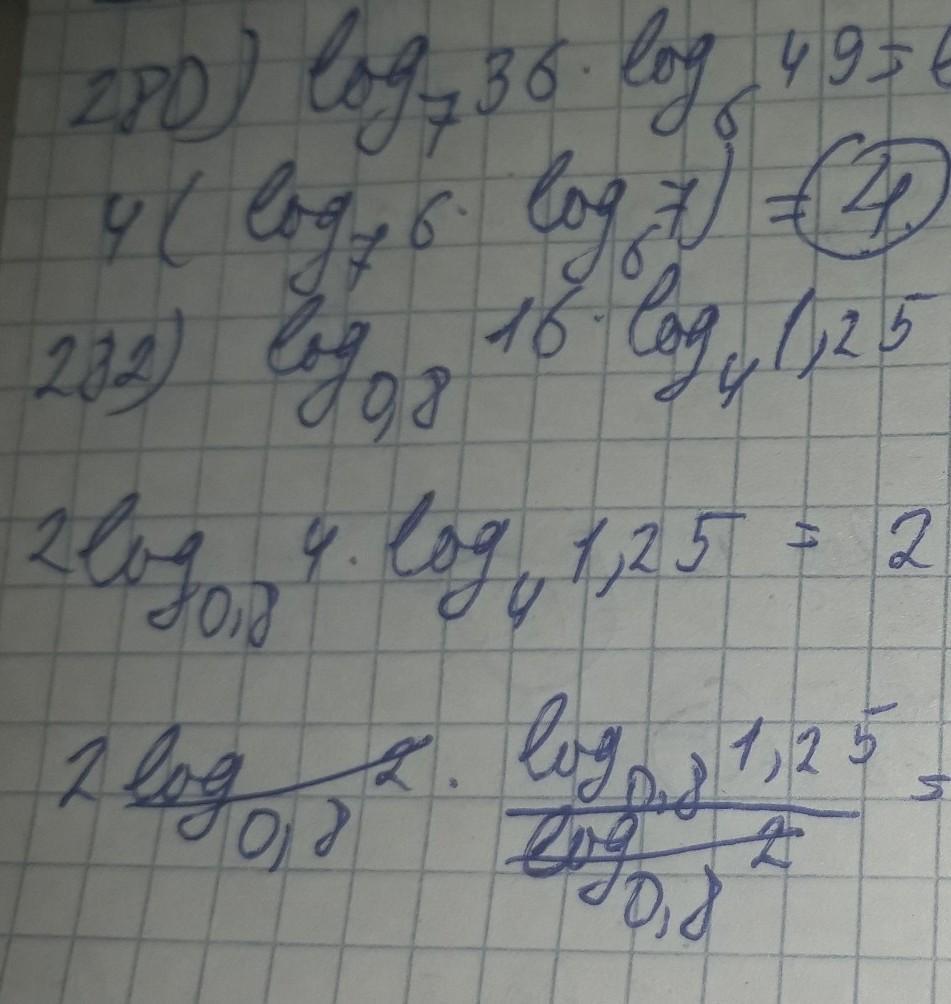 280) log₇ 36 · log₆ 49 =
4( log₇ 6 · log₆ 7) = 4
282) log₀,₈ 16 · log₄ 1,25
2log₀,₈ 4 · log₄ 1,25 = 2
2 log₀,₈ 2 · log₀,₈ 1,25 =
log₀,₈ 2